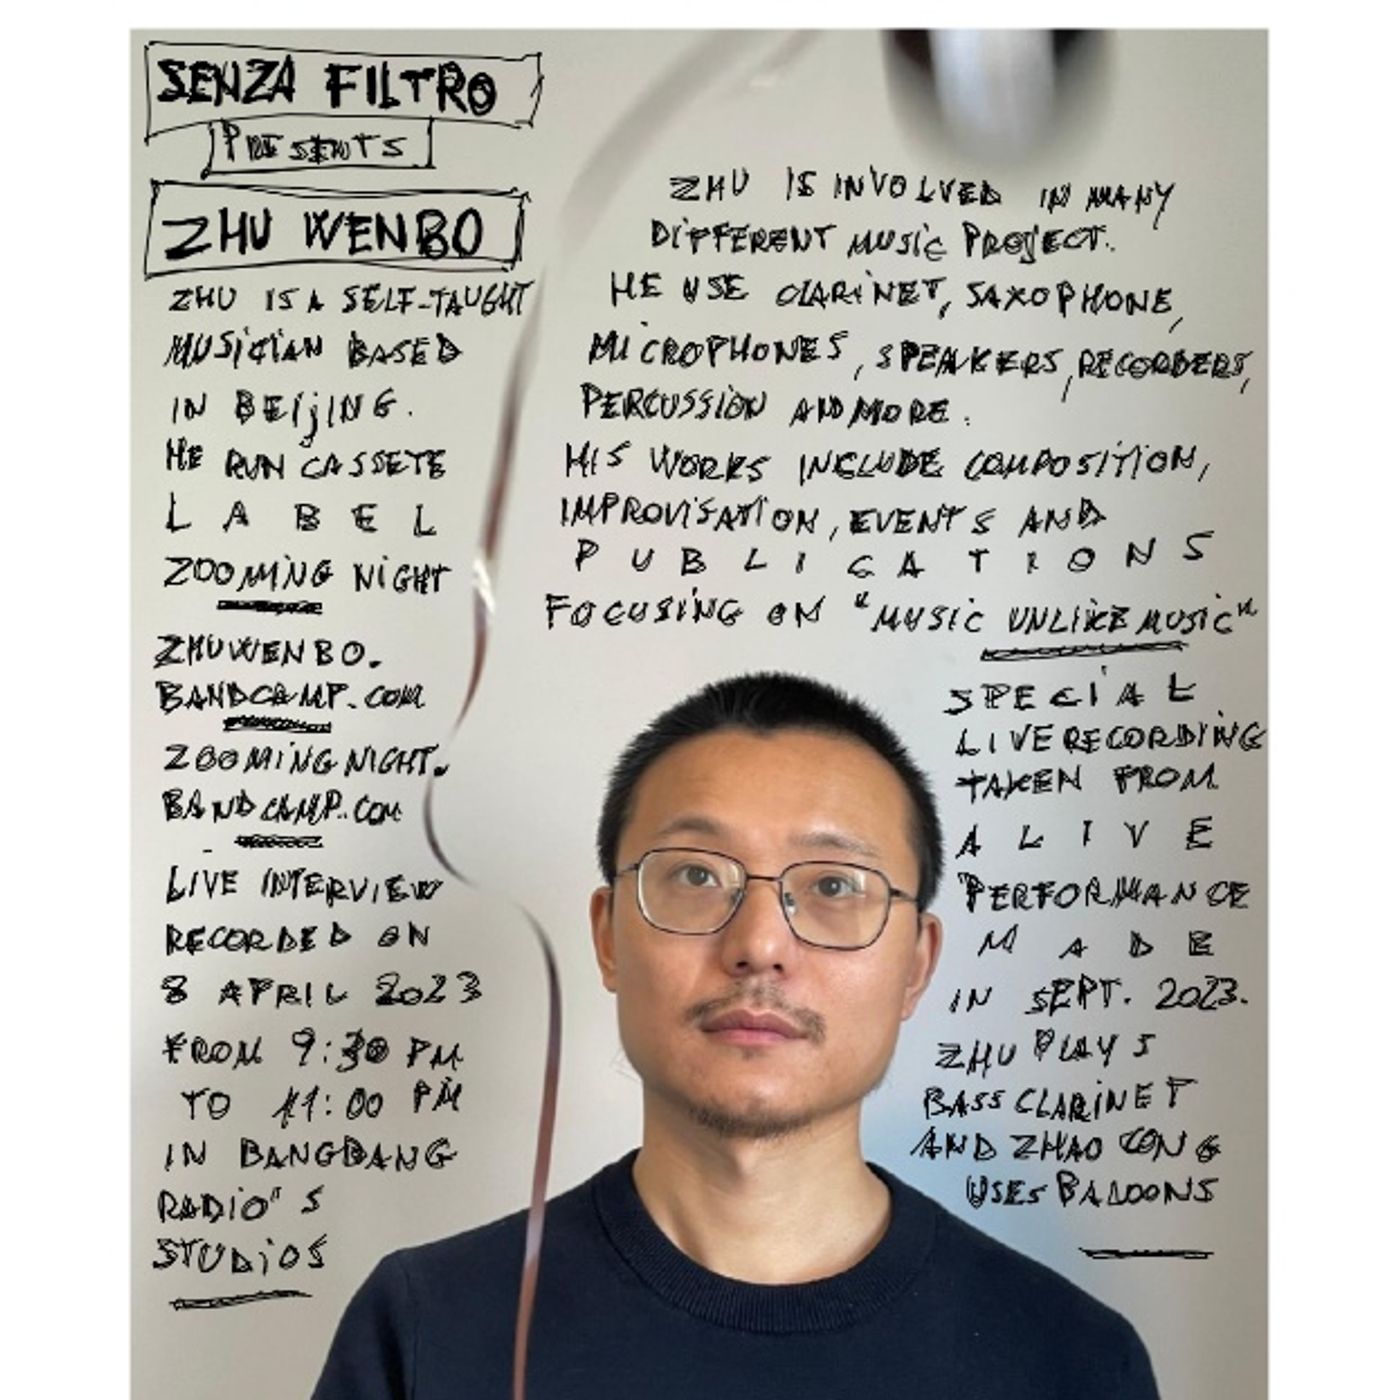 SENZA FILTRO
PRESENTS
ZHU WENBO
ZHU IS A SELF-TAUGHT
MUSICIAN BASED
IN BEIJING.
HE RUN CASSETE
LABEL
ZOOMING NIGHT
ZHUWENBO.
BANDCAMP.COM
ZOOMING NIGHT.
BANDCAMP.COM
LIVE INTERVIEW
RECORDED ON
8 APRIL 2023
FROM 9:30 PM
TO 11:00 PM
IN BANGBANG
RADIO"S
STUDIOS
ZHU IS INVOLVED IN MANY
DIFFERENT MUSIC PROJECT.
HE USE CLARINET, SAXOPHONE,
MICROPHONES, SPEAKERS, RECORDERS,
PERCUSSION AND MORE.
HIS WORKS INCLUDE COMPOSITION,
IMPROVISATION, EVENTS AND
PUBLICATIONS
FOCUSING ON "MUSIC UNLIKE MUSIC"
SPECIAL
LIVE RECORDING
TAKEN FROM
A LIVE
PERFORMANCE
MADE
IN SEPT. 2023.
ZHU PLAYS
BASS CLARINET
AND ZHAO CONG
USES BALOONS